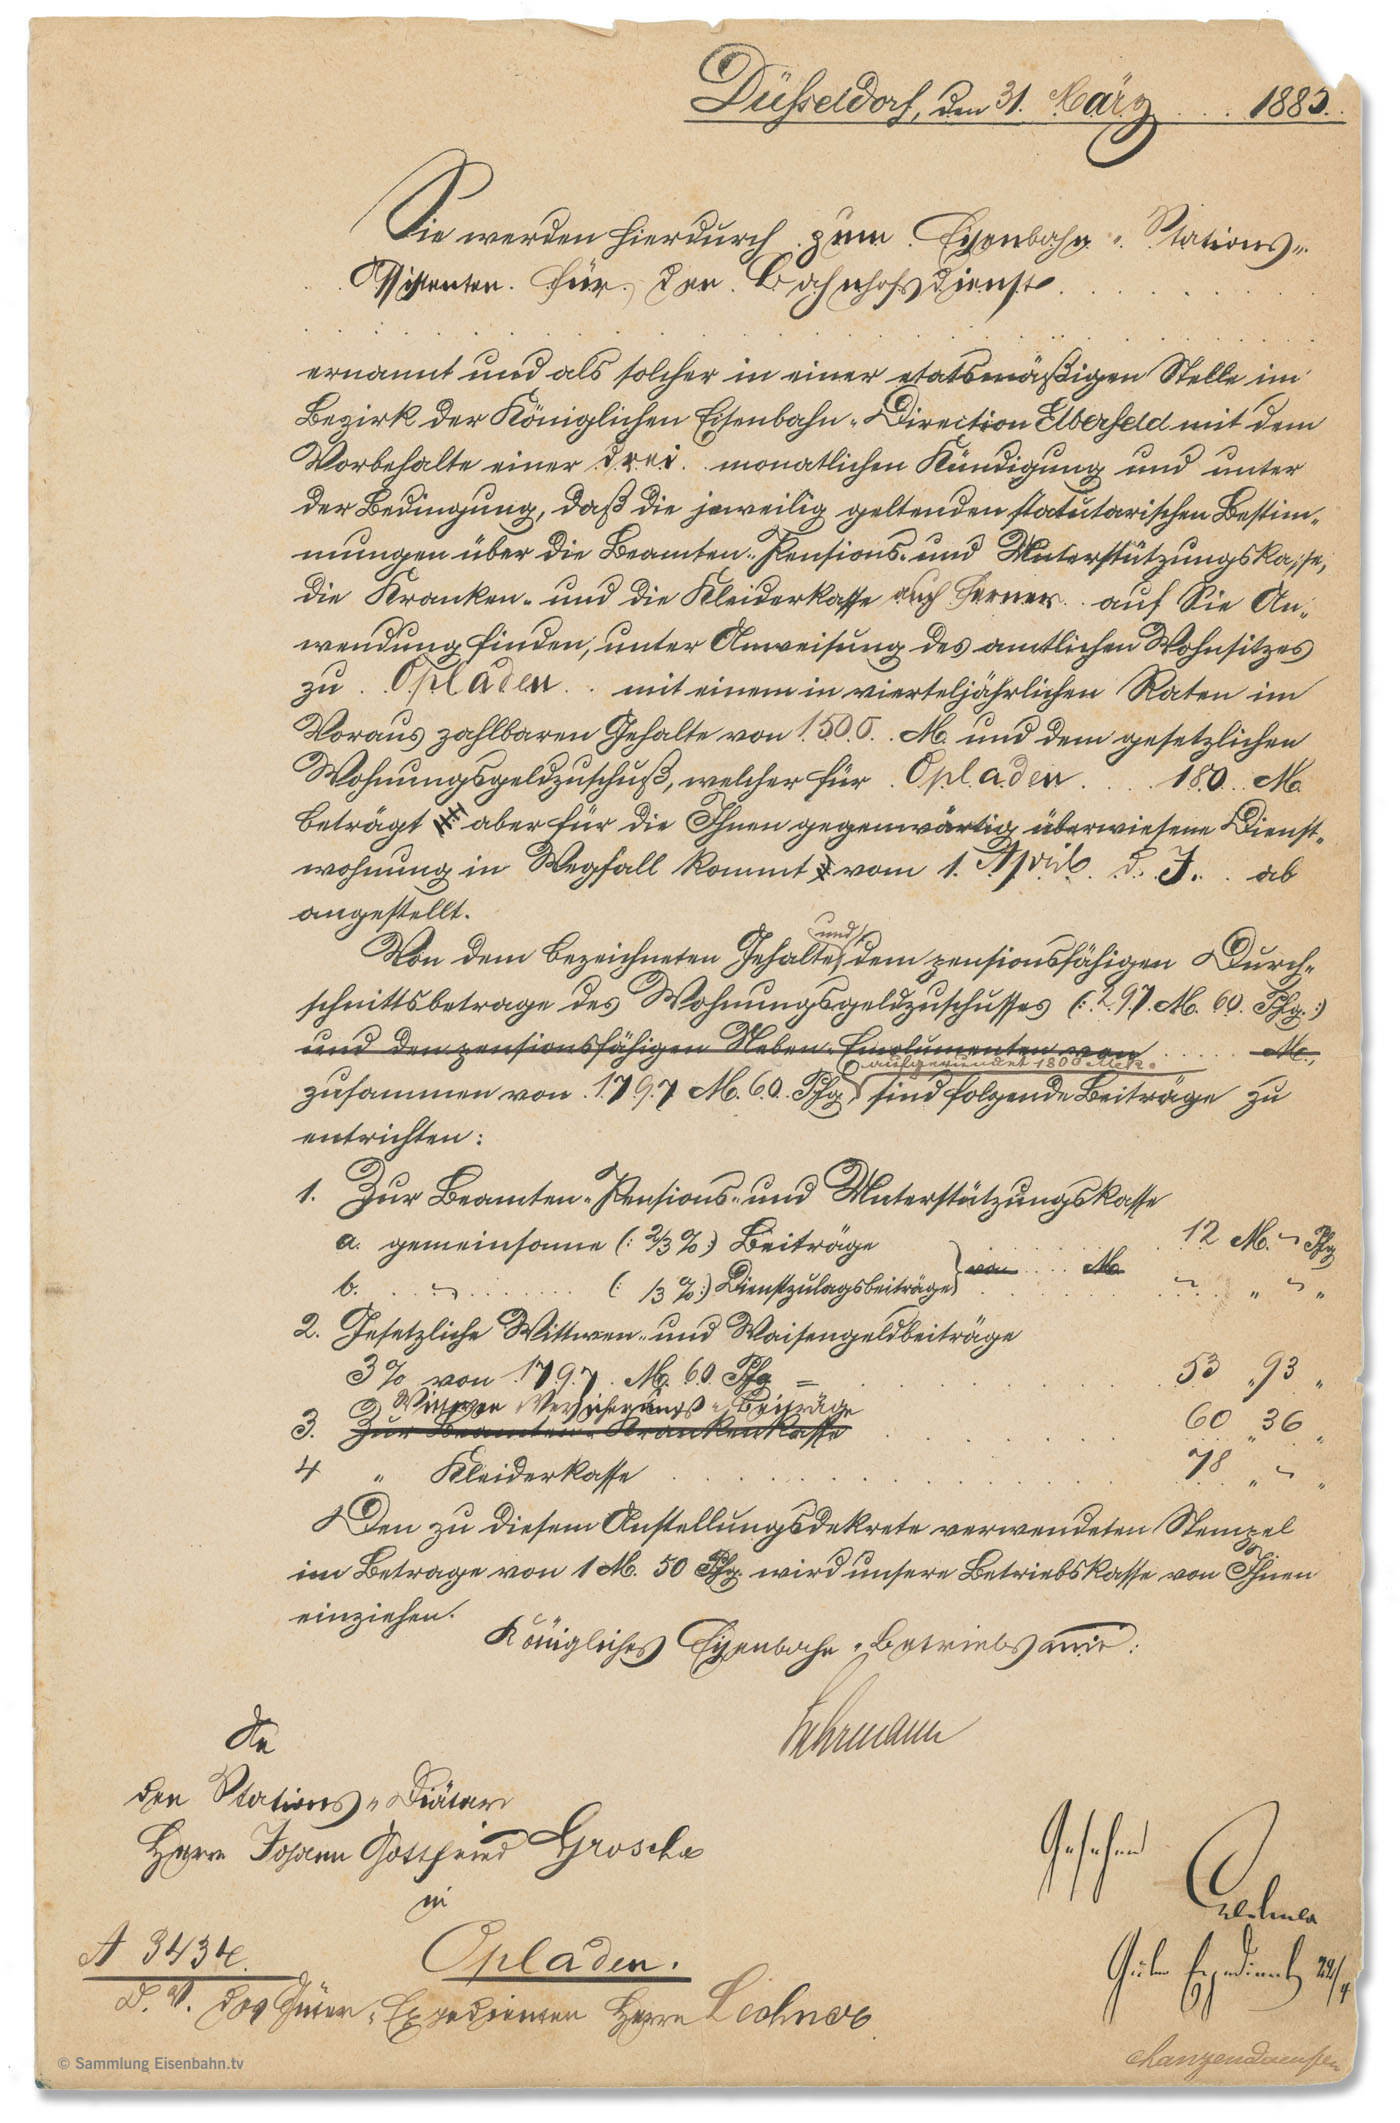 Düsseldorf, den 31. März 1883.
Sie werden hierdurch zum Eisenbahn-Stations-
Assistenten für den Bahnhofsdienst
ernannt und als solcher in einer etatsmäßigen Stelle im
Bezirk der Königlichen Eisenbahn-Direction Elberfeld mit dem
Vorbehalte einer drei monatlichen Kündigung und unter
der Bedingung, daß die jeweilig geltenden statutarischen Bestim-
mungen über die Beamten-Pensions- und Unterstützungskasse,
die Kranken- und die Kleiderkasse auch ferner auf Sie An-
wendung finden, unter Anweisung des amtlichen Wohnsitzes
zu Opladen mit einem in vierteljährlichen Raten im
Voraus zahlbaren Gehalte von 1500 M. und dem gesetzlichen
Wohnungsgeldzuschuß, welcher für Opladen 180 M.
beträgt aber für die Ihnen gegenwärtig überwiesene Dienst-
wohnung in Wegfall kommt vom 1. April d. J. ab
angestellt.
und
Von dem bezeichneten Gehalte, dem pensionsfähigen Durch-
schnittsbetrage des Wohnungsgeldzuschusses (: 297 M. 60 Pfg. :)
und den pensionsfähigen Neben-Emolumenten von M.,
aufgerundet 1800 Mk.
zusammen von 1797 M. 60 Pfg. sind folgende Beiträge zu
entrichten:
1. Zur Beamten-Pensions- und Unterstützungskasse
a. gemeinsame (: 2/3 % :) Beiträge 12 M. " Pfg
b. " (: /3 % :) Dienstzulagsbeiträge } von M. " " " "
2. Gesetzliche Wittwen- und Waisengeldbeiträge
3% von 1797 M. 60 Pfg = 53 " 93 "
Wittwen Versicherungs-Beiträge
3. Zur Beamten-Krankenkasse 60 " 36 "
4 " Kleiderkasse 78 " " "
Den zu diesem Anstellungsdekrete verwendeten Stempel
im Betrage von 1 M. 50 Pfg. wird unsere Betriebskasse von Ihnen
einziehen.
Königliches Eisenbahn-Betriebsamt:
An
den Stations-Diätar
Herrn Johann Gottfried Grosche
in
Opladen.
Gesehen
A 3434
D. V. des Güter-Expedienten Herrn Lechner
22/4
© Sammlung Eisenbahn.tv